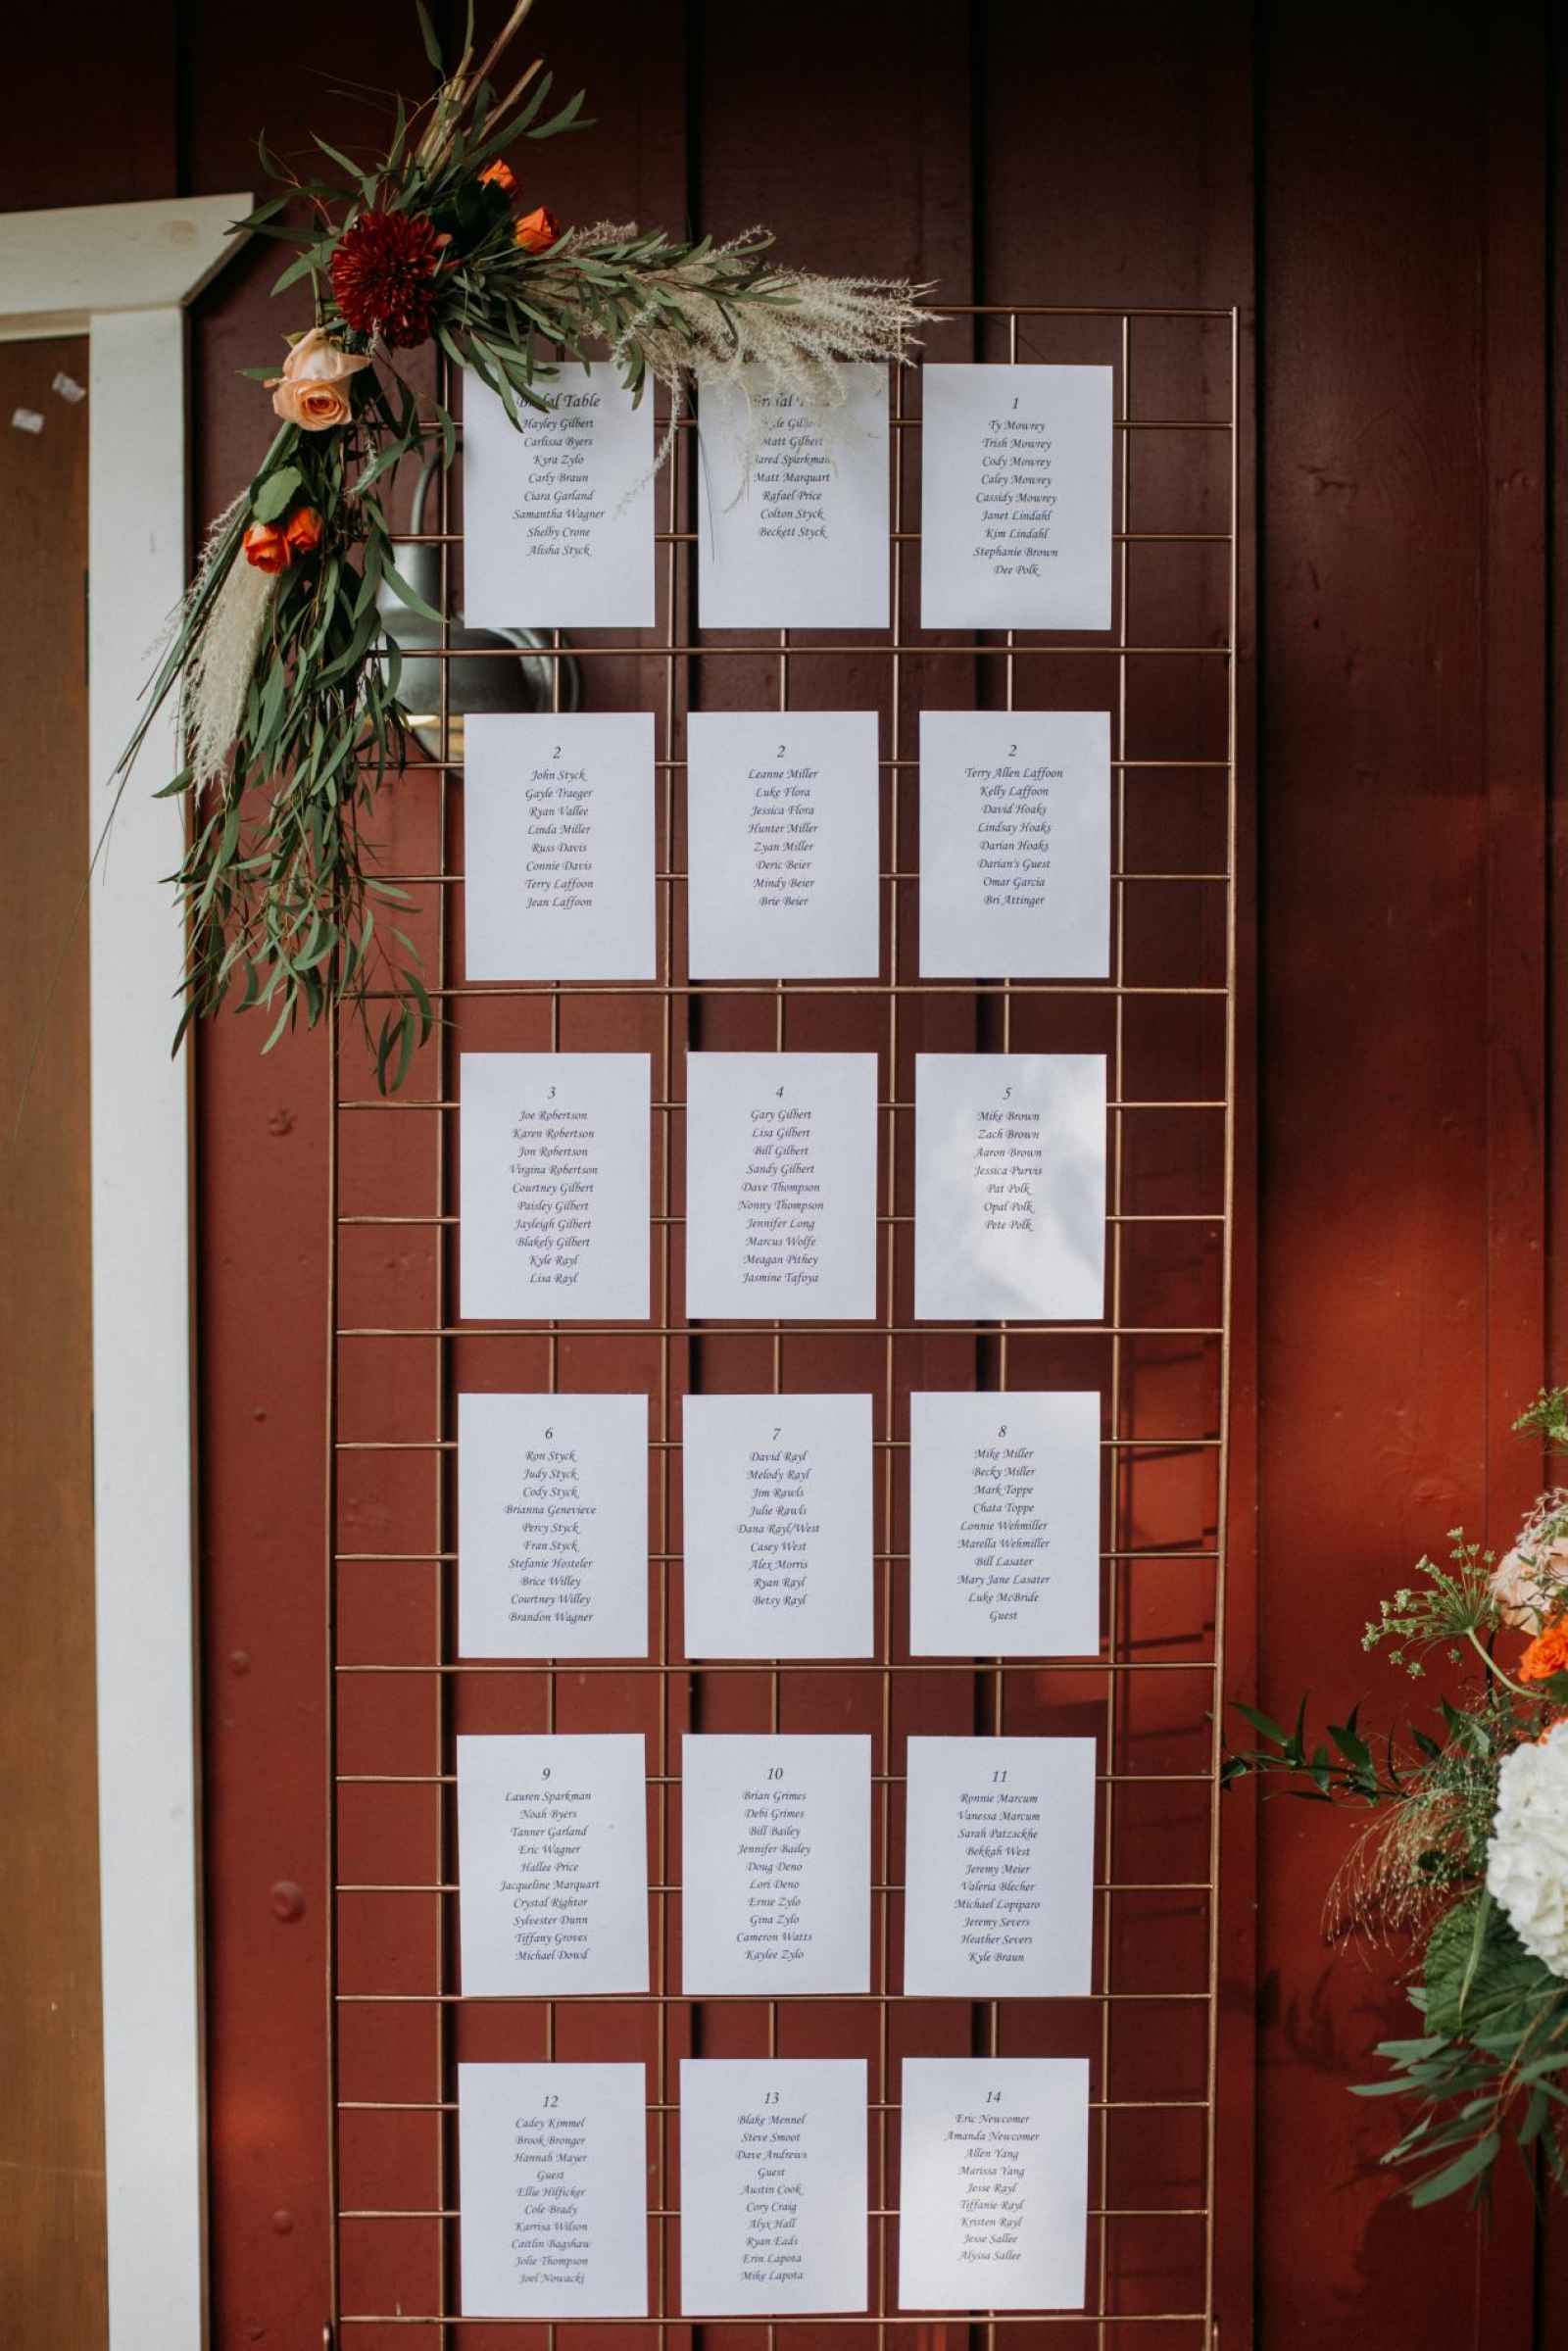 Bridal Table
Hayley Gilbert
Carlissa Byers
Kyra Zylo
Carly Braun
Ciara Garland
Samantha Wagner
Shelby Crone
Alisha Styck
Matt Gilbert
Jared Sparkman
Matt Marquart
Rafael Price
Colton Styck
Beckett Styck
1
Ty Mowrey
Trish Mowrey
Cody Mowrey
Caley Mowrey
Cassidy Mowrey
Janet Lindahl
Kim Lindahl
Stephanie Brown
Dee Polk
2
John Styck
Gayle Traeger
Ryan Vallee
Linda Miller
Russ Davis
Connie Davis
Terry Laffoon
Jean Laffoon
2
Leanne Miller
Luke Flora
Jessica Flora
Hunter Miller
Zyan Miller
Deric Beier
Mindy Beier
Brie Beier
2
Terry Allen Laffoon
Kelly Laffoon
David Hoaks
Lindsay Hoaks
Darian Hoaks
Darian's Guest
Omar Garcia
Bri Attinger
3
Joe Robertson
Karen Robertson
Jon Robertson
Virgina Robertson
Courtney Gilbert
Paisley Gilbert
Jayleigh Gilbert
Blakely Gilbert
Kyle Rayl
Lisa Rayl
4
Gary Gilbert
Lisa Gilbert
Bill Gilbert
Sandy Gilbert
Dave Thompson
Nonny Thompson
Jennifer Long
Marcus Wolfe
Meagan Pithey
Jasmine Tafoya
5
Mike Brown
Zach Brown
Aaron Brown
Jessica Purvis
Pat Polk
Opal Polk
Pete Polk
6
Ron Styck
Judy Styck
Cody Styck
Brianna Genevieve
Percy Styck
Fran Styck
Stefanie Hosteler
Brice Willey
Courtney Willey
Brandon Wagner
7
David Rayl
Melody Rayl
Jim Rawls
Julie Rawls
Dana Rayl/West
Casey West
Alex Morris
Ryan Rayl
Betsy Rayl
8
Mike Miller
Becky Miller
Mark Toppe
Chata Toppe
Lonnie Wehmiller
Marella Wehmiller
Bill Lasater
Mary Jane Lasater
Luke McBride
Guest
9
Lauren Sparkman
Noah Byers
Tanner Garland
Eric Wagner
Hallee Price
Jacqueline Marquart
Crystal Rightor
Sylvester Dunn
Tiffany Groves
Michael Dowd
10
Brian Grimes
Debi Grimes
Bill Bailey
Jennifer Bailey
Doug Deno
Lori Deno
Ernie Zylo
Gina Zylo
Cameron Watts
Kaylee Zylo
11
Ronnie Marcum
Vanessa Marcum
Sarah Patzackhe
Bekkah West
Jeremy Meier
Valeria Blecher
Michael Lopiparo
Jeremy Severs
Heather Severs
Kyle Braun
12
Cadey Kimmel
Brook Bronger
Hannah Mayer
Guest
Ellie Hilficker
Cole Brady
Karrisa Wilson
Caitlin Bagshaw
Jolie Thompson
Joel Nowacki
13
Blake Mennel
Steve Smoot
Dave Andrews
Guest
Austin Cook
Cory Craig
Alyx Hall
Ryan Eads
Erin Lapota
Mike Lapota
14
Eric Newcomer
Amanda Newcomer
Allen Yang
Marissa Yang
Jesse Rayl
Tiffanie Rayl
Kristen Rayl
Jesse Sallee
Alyssa Sallee